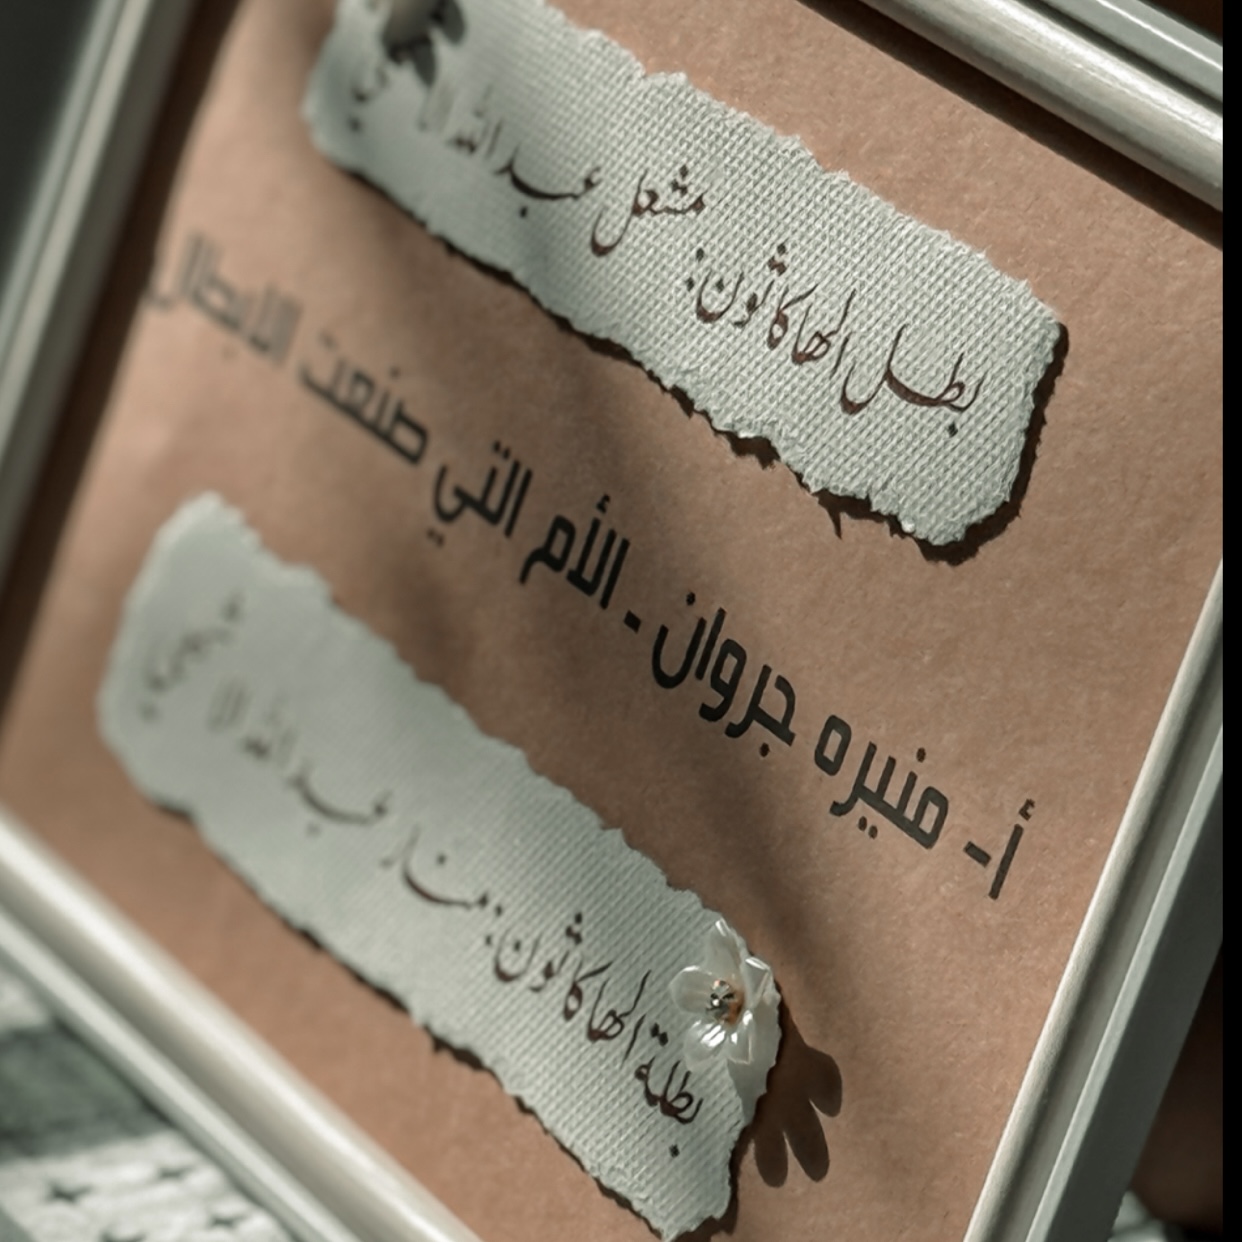 بطل الهاكاثون: مشعل عبدالله
أ- منيره جروان - الأم التي صنعت الأبطال
بطلة الهاكاثون: منار عبدالله